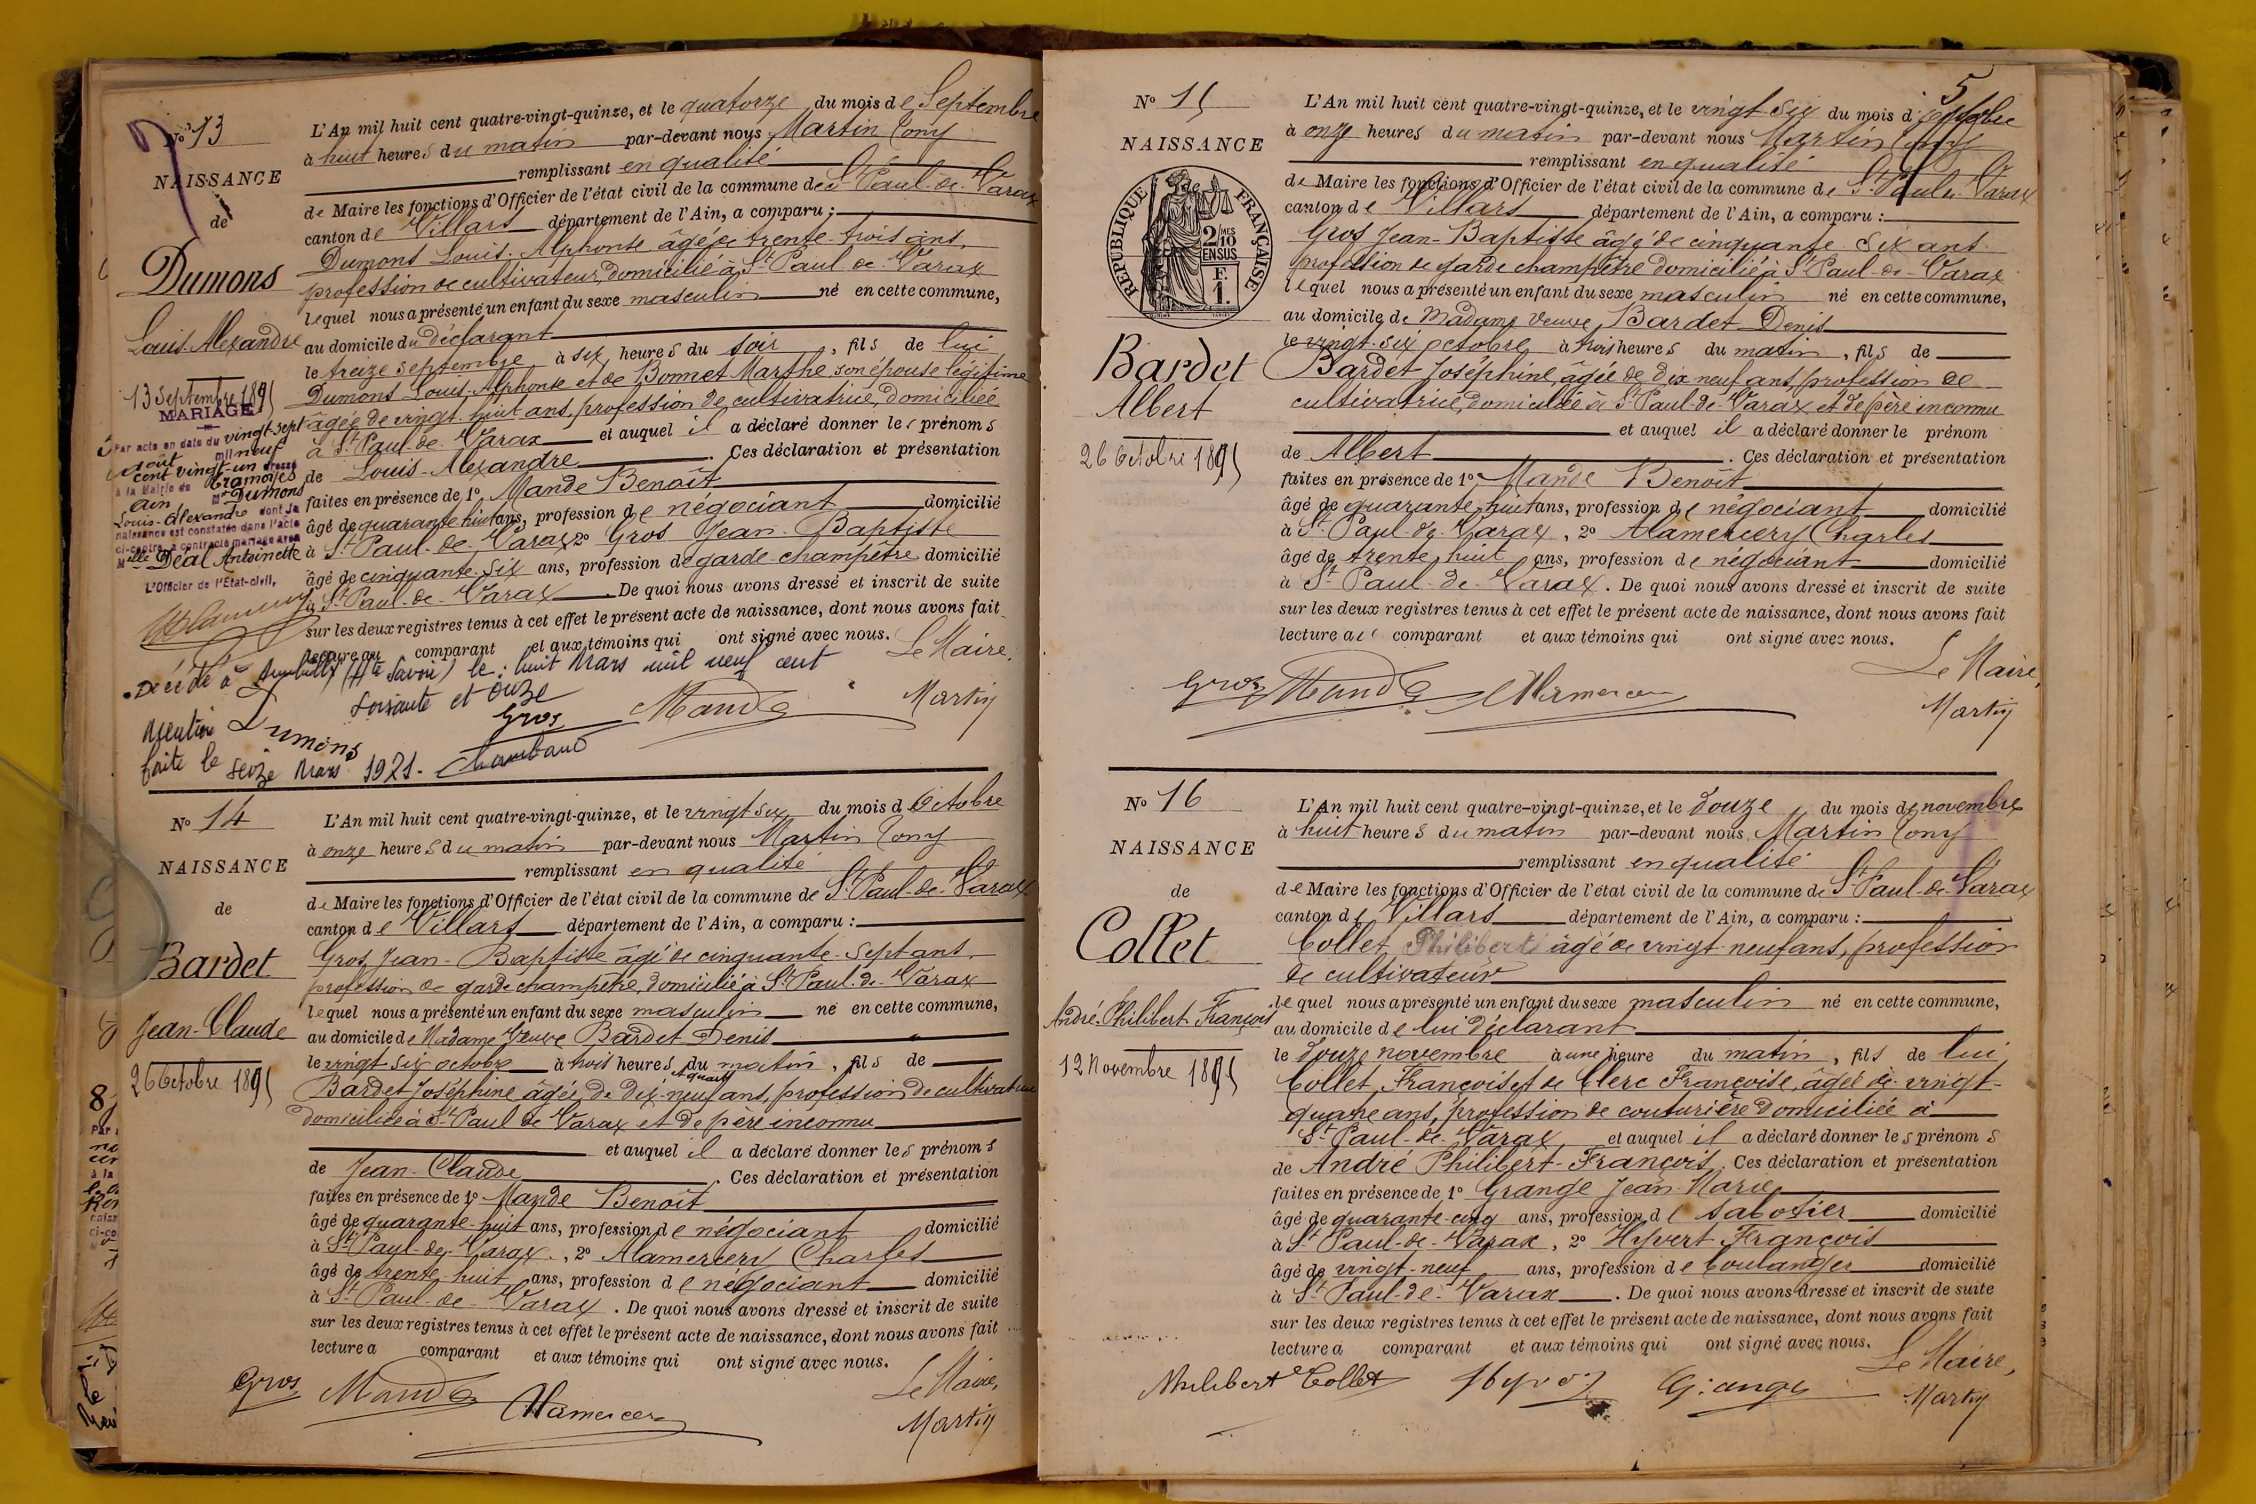 N° 13
NAISSANCE
de
Dumons
Louis Alexandre
13 Septembre 1895
MARIAGE
Par acte en date du vingt-sept
août mil neuf
cent vingt-un dressé
à la Mairie de Tramoyes
Ain Mr Dumons
Louis-Alexandre dont la
naissance est constatée dans l'acte
ci-contre, a contracté mariage avec
Melle Déal Antoinette
L'Officier de l'État-civil,
L'An mil huit cent quatre-vingt-quinze, et le quatorze du mois de Septembre
à huit heures du matin par-devant nous Martin Tony
remplissant en qualité
de Maire les fonctions d'Officier de l'état civil de la commune de St Paul-de-Varax
canton de Villars département de l'Ain, a comparu :
Dumons Louis-Alphonse âgé de trente-trois ans,
profession de cultivateur, domicilié à St Paul-de-Varax
lequel nous a présenté un enfant du sexe masculin né en cette commune,
au domicile du déclarant
le treize septembre à six heures du soir, fils de lui
Dumons Louis-Alphonse et de Bonnet Marthe son épouse légitime
âgée de vingt-huit ans, profession de cultivatrice, domiciliée
à St Paul-de-Varax et auquel il a déclaré donner les prénoms
de Louis-Alexandre. Ces déclaration et présentation
faites en présence de 1° Mande Benoît
âgé de quarante-huit ans, profession de négociant domicilié
à St Paul-de-Varax 2° Gros Jean-Baptiste
âgé de cinquante-six ans, profession de garde-champêtre domicilié
à St Paul-de-Varax. De quoi nous avons dressé et inscrit de suite
sur les deux registres tenus à cet effet le présent acte de naissance, dont nous avons fait
lecture au comparant et aux témoins qui ont signé avec nous.
Le Maire,
Décédé à (Hte Savoie) le : huit Mars mil neuf cent
soixante et onze
Dumons
Gros
Mande
Martin
Mention
faite le seize Mars 1971.
Chambaud
N° 14
NAISSANCE
de
Bardet
Jean-Claude
26 Octobre 1895
L'An mil huit cent quatre-vingt-quinze, et le vingt six du mois d'Octobre
à onze heures du matin par-devant nous Martin Tony
remplissant en qualité
de Maire les fonctions d'Officier de l'état civil de la commune de St Paul-de-Varax
canton de Villars département de l'Ain, a comparu :
Gros Jean-Baptiste âgé de cinquante-sept ans,
profession de garde champêtre, domicilié à St Paul-de-Varax
lequel nous a présenté un enfant du sexe masculin né en cette commune,
au domicile de Madame Veuve Bardet Denis
le vingt six octobre à trois heures du matin, fils de
et quart
Bardet Joséphine âgée de dix-neuf ans, profession de cultivatrice
domiciliée à St Paul de Varax et de père inconnu
et auquel il a déclaré donner les prénoms
de Jean-Claude. Ces déclaration et présentation
faites en présence de 1° Mande Benoît
âgé de quarante-huit ans, profession de négociant domicilié
à St Paul-de-Varax, 2° Alamercery Charles
âgé de trente huit ans, profession de négociant domicilié
à St Paul-de-Varax. De quoi nous avons dressé et inscrit de suite
sur les deux registres tenus à cet effet le présent acte de naissance, dont nous avons fait
lecture a comparant et aux témoins qui ont signé avec nous.
Le Maire,
Gros
Mande
Alamercery
Martin
5
N° 15
NAISSANCE
RÉPUBLIQUE FRANÇAISE
2/10 MES
EN SUS
F.
1.
Bardet
Albert
26 Octobre 1895
L'An mil huit cent quatre-vingt-quinze, et le vingt six du mois d'octobre
à onze heures du matin par-devant nous Martin Tony
remplissant en qualité
de Maire les fonctions d'Officier de l'état civil de la commune de St Paul-de-Varax
canton de Villars département de l'Ain, a comparu :
Gros Jean-Baptiste âgé de cinquante-six ans
profession de garde champêtre domicilié à St Paul-de-Varax
lequel nous a présenté un enfant du sexe masculin né en cette commune,
au domicile de Madame veuve Bardet Denis
le vingt-six octobre à trois heures du matin, fils de
Bardet Joséphine, âgée de dix neuf ans, profession de
cultivatrice, domiciliée à St Paul-de-Varax et de père inconnu
et auquel il a déclaré donner le prénom
de Albert. Ces déclaration et présentation
faites en présence de 1° Mande Benoît
âgé de quarante huit ans, profession de négociant domicilié
à St Paul-de-Varax, 2° Alamercery Charles
âgé de trente huit ans, profession de négociant domicilié
à St Paul-de-Varax. De quoi nous avons dressé et inscrit de suite
sur les deux registres tenus à cet effet le présent acte de naissance, dont nous avons fait
lecture au comparant et aux témoins qui ont signé avec nous.
Le Maire,
Gros
Mande
Alamercery
Martin
N° 16
NAISSANCE
de
Collet
André-Philibert François
12 Novembre 1895
L'An mil huit cent quatre-vingt-quinze, et le douze du mois de novembre
à huit heures du matin par-devant nous Martin Tony
remplissant en qualité
de Maire les fonctions d'Officier de l'état civil de la commune de St Paul-de-Varax
canton de Villars département de l'Ain, a comparu :
Collet Philibert âgé de vingt-neuf ans, profession
de cultivateur
lequel nous a présenté un enfant du sexe masculin né en cette commune,
au domicile de lui déclarant
le douze novembre à une heure du matin, fils de lui
Collet, François et de Clerc Françoise, âgée de vingt-
quatre ans, profession de couturière domiciliée à
St Paul-de-Varax, et auquel il a déclaré donner les prénoms
de André Philibert-François. Ces déclaration et présentation
faites en présence de 1° Grange Jean Marie
âgé de quarante-cinq ans, profession de sabotier domicilié
à St Paul-de-Varax, 2° Hyvert François
âgé de vingt-neuf ans, profession de boulanger domicilié
à St Paul-de-Varax. De quoi nous avons dressé et inscrit de suite
sur les deux registres tenus à cet effet le présent acte de naissance, dont nous avons fait
lecture a comparant et aux témoins qui ont signé avec nous.
Le Maire,
Philibert Collet
Grange
Martin